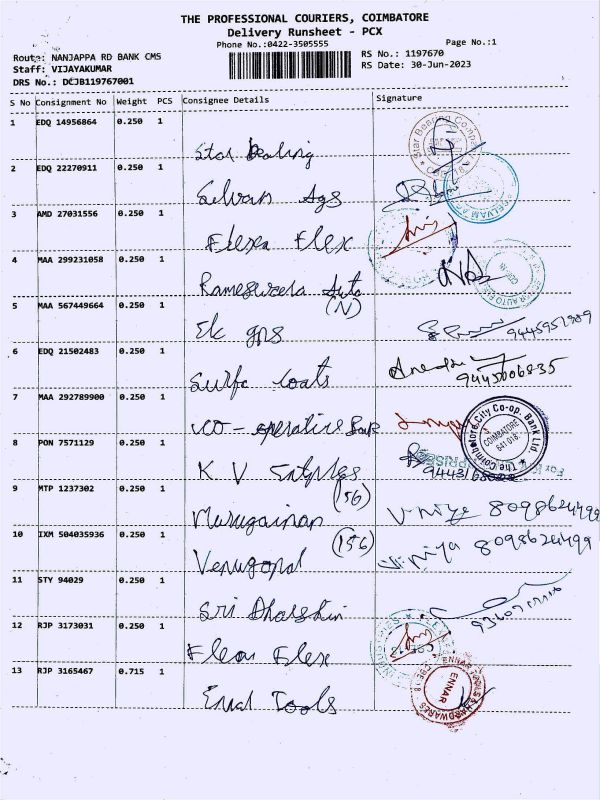 THE PROFESSIONAL COURIERS, COIMBATORE
Delivery Runsheet - PCX
Phone No.:0422-3505555
Page No.:1
Route: NANJAPPA RD BANK CMS
RS No.: 1197670
Staff: VIJAYAKUMAR
RS Date: 30-Jun-2023
DRS No.: DCJB119767001
S No Consignment No Weight PCS Consignee Details Signature
1 EDQ 14956864 0.250 1
Star Bearing
2 EDQ 22270911 0.250 1
Selvam Ags
3 AMD 27031556 0.250 1
Flexa Flex
4 MAA 299231058 0.250 1
Rameswara Auto
(N)
5 MAA 567449664 0.250 1
Ek gns
6 EDQ 21502483 0.250 1
9445006835
Surfa Coats
7 MAA 292789900 0.250 1
CO-operative Bank
The Coimbatore City Co-op. Bank Ltd.
COIMBATORE
641 018.
8 PON 7571129 0.250 1
K V Entprses
9 MTP 1237302 0.250 1
(156)
Murugainan
8098624499
10 IXM 504035936 0.250 1
(156)
Venugopal
8098624499
11 STY 94029 0.250 1
Sri Dharshin
12 RJP 3173031 0.250 1
Flexa Flex
13 RJP 3165467 0.715 1
Enal Tools
ENNAR